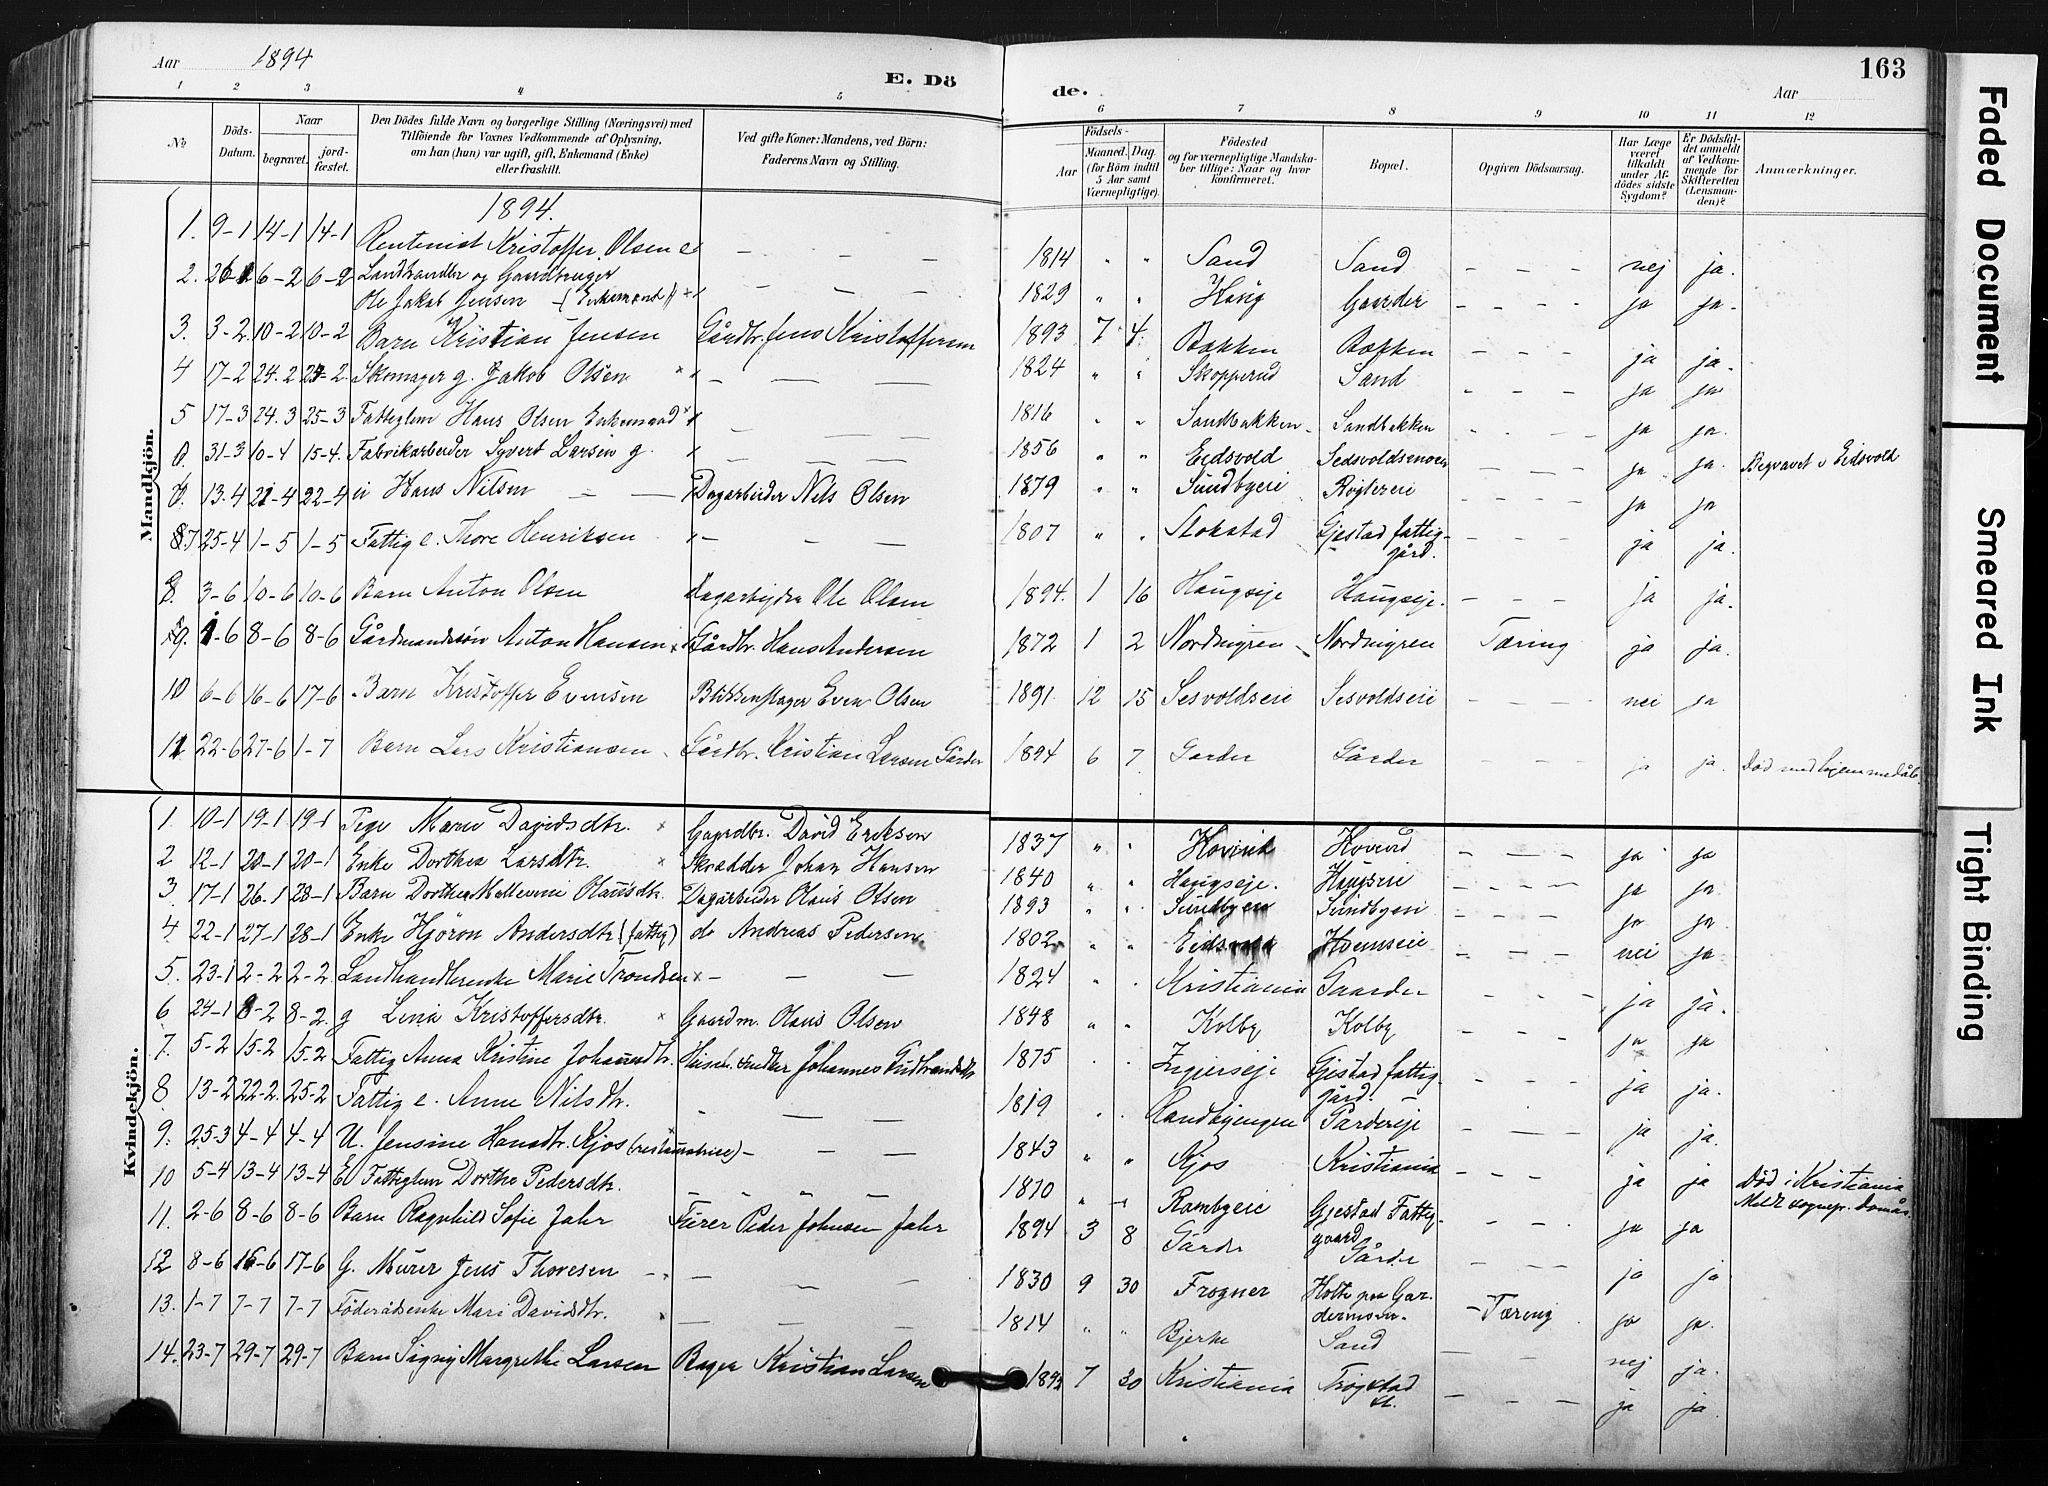 Aar 1894
E. Dö
de.
Aar
163
1 2 3 4 5 6 7 8 9 10 11 12
№
Döds-Datum.
Naar
begravet.
jord-fæstet.
Den Dödes fulde Navn og borgerlige Stilling (Næringsvei) med
Tilföiende för Voxnes Vedkommende af Oplysning,
om han (hun) var ugift, gift, Enkemand (Enke)
eller fraskilt.
Ved gifte Koner: Mandens, ved Börn:
Faderens Navn og Stilling.
Födsels-
Aar
Maaned. Dag.
(for Börn indtil
5 Aar samt
Værnepligtige).
Födested
og for værnepligtige Mandska-
ber tillige: Naar og hvor
konfirmeret.
Bopæl.
Opgiven Dödsaarsag.
Har Læge
været
tilkaldt
under Af-
dödes sidste
Sygdom?
Er Dödsfal-
det anmeldt
af Vedkom-
mende for
Skifteretten
(Lensman-
den)?
Anmærkninger.
Mandkjön.
1894.
1. 9-1 14-1 14-1 Rentenist Kristoffer Olsen e — — — 1814 " " Sand Sand — — — nej ja.
2. 26-1 6-2 6-2 Landhandler og Gaardbruger
Ole Jakob Jensen — (Enkemand) — — — 1829 " " Haug Gaarder — — — ja ja.
3. 3-2 10-2 10-2 Barn Kristian Jensen Gårdbr. Jens Kristoffersen 1893 7 4. Bakken Bakken — — — ja ja.
4 17-2 24.2 24-2. Skomager g. Jakob Olsen — — — 1824 " " Skopperud Sand — — — ja ja
5 17-3 24.3 25-3 Fatteglem Hans Olsen Enkemand — — — 1816 " " Sandbakken Sandbakken — — — ja ja.
6. 31-3 10-4 15-4. Fabrikarbeider Syvert Larsen g. — — — 1856 " " Eidsvold Sedsvoldsmoen — — — ja ja. Begravet i Eidsvold
13.4 21-4 22-4 Hans Nilsen — — Dagarbeider Nils Olsen 1879 " " Sundbyeie Røglereie — — — ja ja
7 25-4 1-5 1-5 Fattig e. Thore Henriksen — — — 1807 " " Stokstad Gjestad fattig-
gård. — — — ja ja.
8. 3-6 10-6 10-6 Barn Anton Olsen Dagarbejder Ole Olsen 1894. 1 16 Haugseje Haugseje. — — — ja ja.
9. 1-6 8-6 8-6 Gårdmandssön Anton Hansen Gårdbr. Hans Andersen 1872 1 2 Nordmyren Nordmyren Tæring ja ja.
10 6-6 16-6 17-6 Barn Kristoffer Evensen Blikkenslager Even Olsen 1891. 12 15 Sesvoldseie Sesvoldseie — — — nei ja
11 22-6 27-6 1-7 Barn Lars Kristiansen Gårdbr. Kristian Larsen Gårder 1894 6 7 Garder Gårder — — — ja ja. Död med hjemmedåb.
Kvindekjön.
1. 10-1 19-1 19-1 Pige Marie Davidsdtr. Gaardbr. David Eriksen 1837 " " Hovind Hovind — — — ja ja
2 12-1 20-1 20-1 Enke Dorthea Larsdtr. Skrædder Johan Hansen 1840 " " Haugseje. Haugseie — — — ja ja
3 17-1 26-1 28-1 Barn Dorthea Mallevine Olausdtr. Dagarbeider Olaus Olsen 1893 " " Sundbyeie Sundbyeie — — — ja ja
4. 22-1 27-1 28-1 Enke Hjöron Andersdtr (fattig) do Andreas Pedersen 1802 " " Eidsvold Hoemseie — — — nei ja
5. 23-1 2-2 2-2 Landhandlerenke Marie Trondsen — — — 1824 " " Kristiania Gaarder — — — ja ja.
6 24-1 8-2 8-2. g Lina Kristoffersdtr. Gaardm. Olaus Olsen 1848 " " Kolby Kolby — — — ja ja
7. 5-2 15-2 15-2 Fattig Anna Kristine Johannesdtr. Johannes Gudbrandsdtr 1875 Gjestad fattig-
gård. — — — ja ja.
8 13-2 22-2. 25-2 Fattig e. Anne Nilsdtr. — — 1819 Randbyengen Gardereje — — — ja ja.
9. 25-3 4-4 4-4 U. Jensine Hansdtr. Kjos (restauratrice) — — — 1843 " " Kjos Kristiania — — — ja ja Död i Kristiania
10 5-4 13-4 13-4 E. Fatteglem Dorthe Pedersdtr. — — — 1810 " " Rambyeie Gjestad Fattig-
gaard — — — ja ja
11. 2-6 8-6 8-6 Barn Ragnhild Sofie Jahr Furer Peder Johnsen Jahr 1894 3 8 Gårder Gårder — — — ja ja
12 8-6 16-6 17-6 G. Murer Jens Thoresen — — — 1830 9 30 Frogner Holte paa Gar-
dermoen. Tæring ja ja.
13. 1-7 7-7 7-7 Föderådsenke Mari Davidsdtr. — — — 1814 " " Bjerke Sand — — — nej ja.
14. 23-7 29-7 29-7 Barn Signy Margrethe Larsen Bager Kristian Larsen 1893 7 30 Kristiania Trøgstad
st. — — — ja ja.
Faded Document
Smeared Ink
Tight Binding